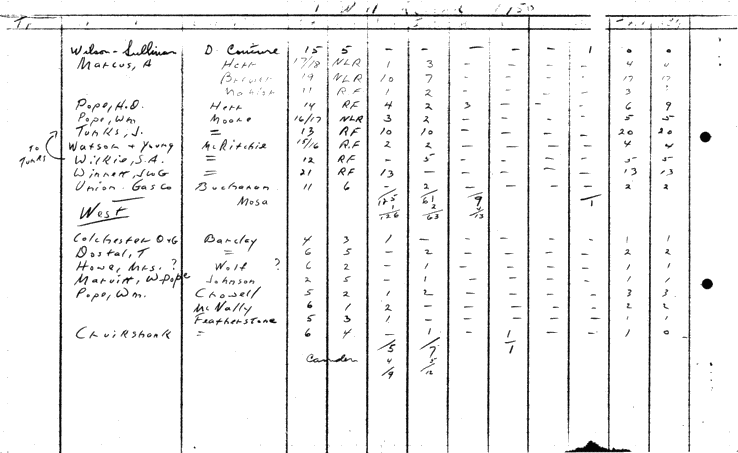 Wilson-Sullivan D. Couture 15 5 - - - - - 1 0 0
Marcus, A Herr 17/18 NLR 1 3 - - - - 4 4
Brewer 19 NLR 10 7 - - - - 17 17
11 RF 1 2 - - - - 3
Pope, H.O. Herr 14 RF 4 2 3 - - - 6 9
Pope, Wm Moore 16/17 NLR 3 2 - - - - 5 5
Tunks, J. = 13 RF 10 10 - - - - 20 20
TO TUNKS Watson + Young McRitchie 15/16 RF 2 2 - - - - 4 4
Wilkie, S.A. = 12 RF - 5 - - - - 5 5
Winnett, JWG = 21 RF 13 - - - - - 13 13
Union Gas Co Buchanan 11 6 - 2 - - - - 2 2
Mosa 125 61 9 1
West 1 2 4
126 63 13
Colchester O+G Barclay 4 3 1 - - - - - 1 1
Dostal, T = 6 5 - 2 - - - - 2 2
Howe, Mrs. ? Wolf ? 6 2 - 1 - - - - 1 1
Marvitt, W Pope Johnson 2 5 - 1 - - - - 1 1
Pope, Wm. Crowell 5 2 1 2 - - - - 3 3
McNally 6 1 2 - - - - - 2 2
Featherstone 5 3 1 - - - - - 1 1
Cruikshank = 6 4 - 1 - 1 - - 1 0
5 7 1
Camden 4 5
9 12